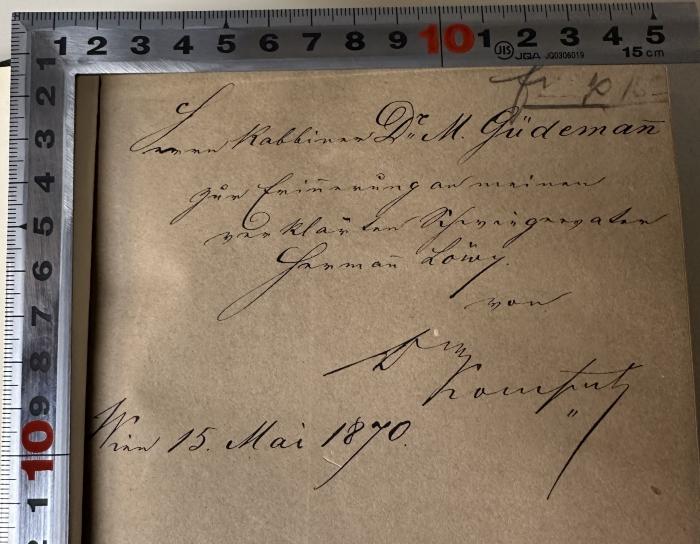 1 2 3 4 5 6 7 8 9 10 1 2 3 4 5
JIS JQA JQ0306019 15cm
1 2 3 4 5 6 7 8 9 10 1
Herrn Rabbiner Dr. M. Güdeman̄
zur Erin̄erung an meinen
verklärten Schwiegervater
Herman̄ Löwy.
von
Kompert
Wien 15. Mai 1870.